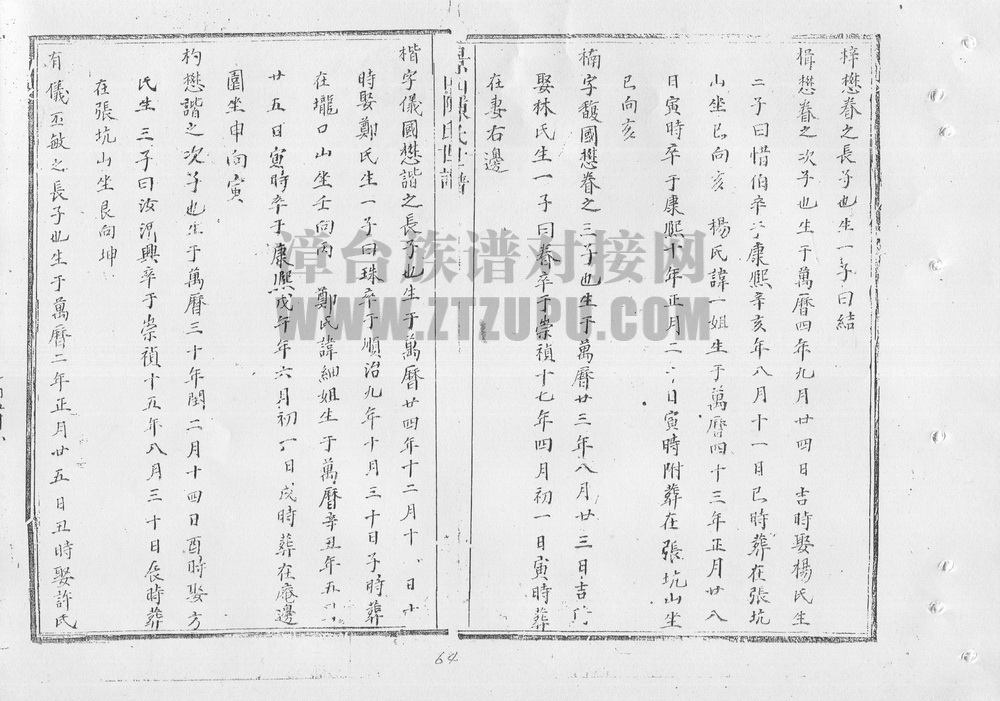 梓懋眷之長子也生一子曰結
楫懋眷之次子也生于萬曆四年九月廿四日吉時娶楊氏生
二子曰惜伯卒于康熙辛亥年八月十一日巳時葬在張坑
山坐巳向亥 楊氏諱一姐生于萬曆四十三年正月廿八
日寅時卒于康熙十年正月二 日寅時附葬在張坑山坐
巳向亥
楠字馥國懋眷之三子也生于萬曆廿三年八月廿三日吉
娶林氏生一子曰春卒于崇禎十七年四月初一日寅時葬
在妻右邊
陳氏世譜
楷字儀國懋諧之長子也生于萬曆廿四年十二月十 日
時娶鄭氏生一子曰珠卒于順治九年十月三十日子時葬
在壠口山坐壬向丙 鄭氏諱細姐生于萬曆辛丑年五
廿五日寅時卒于康熙戊午年六月初 日戌時葬在庵邊
園坐申向寅
杓懋諧之次子也生于萬曆三十年閏二月十四日酉時娶方
氏生三子曰汝 興卒于崇禎十五年八月三十日辰時葬
在張坑山坐艮向坤
有儀丕敏之長子也生于萬曆二年正月廿五日丑時娶許氏
64
漳台族谱对接网
WWW.ZTZUPU.COM